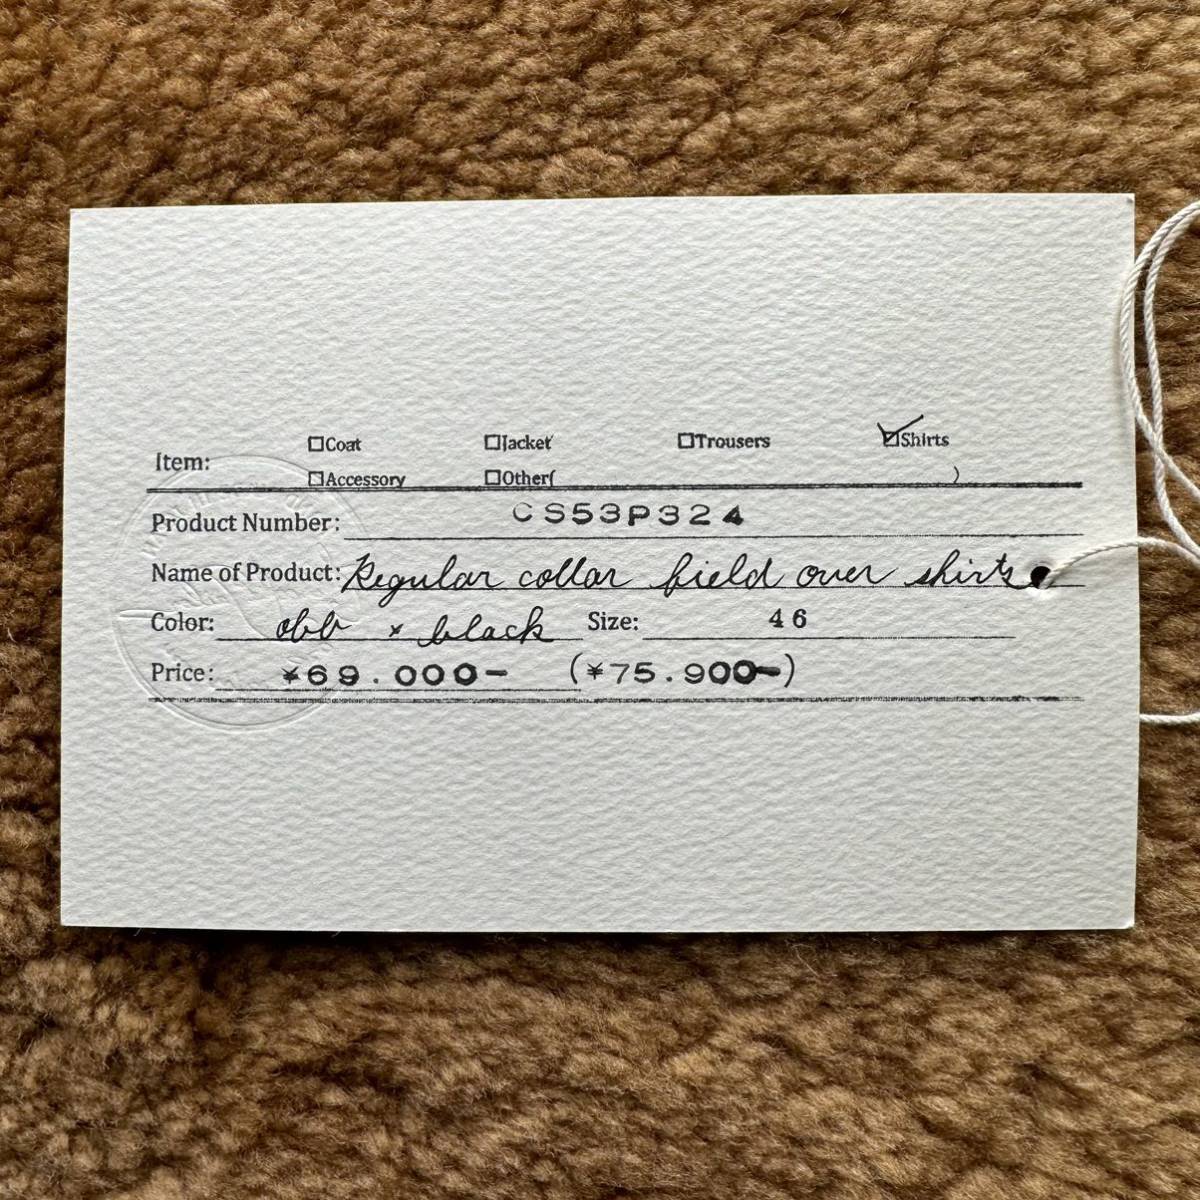 Item: □Coat □Jacket □Trousers ☑Shirts
□Accessory □Other( )
Product Number: CS53P324
Name of Product: Regular collar field over shirts
Color: obb × black Size: 46
Price: ¥69.000- (¥75.900-)